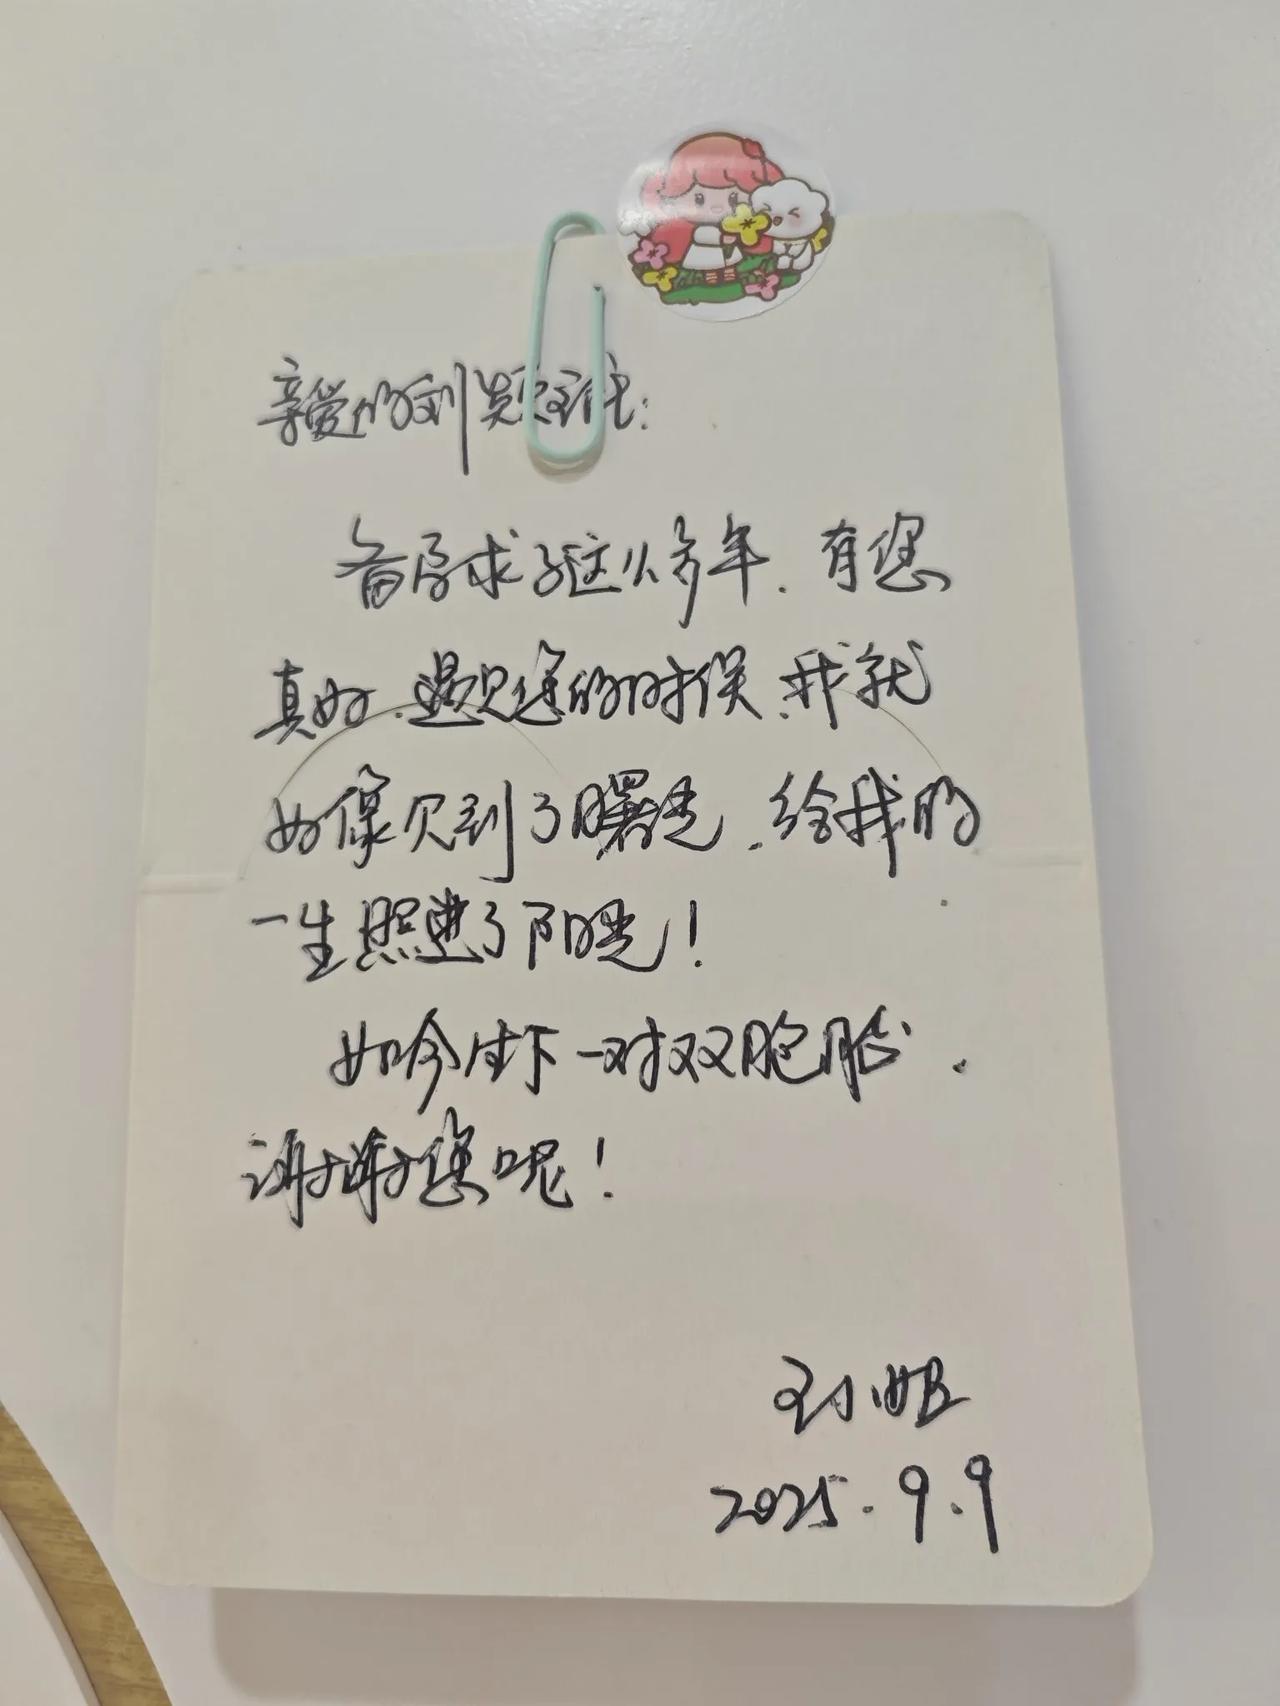 亲爱的刘颖主任：
备孕求子这么多年，有您
真好，遇见您的时候，我就
好像见到了曙光，给我的
一生照进了阳光！
如今生下一对双胞胎，
谢谢您呢！
刘姐
2025.9.9